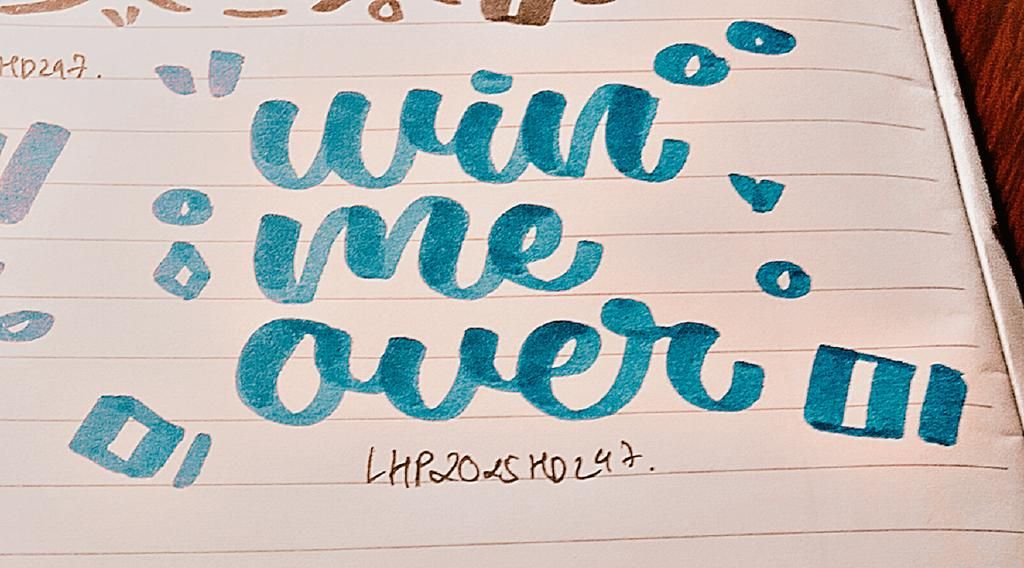 HD247.
win
me
over
LHP2025HD247.